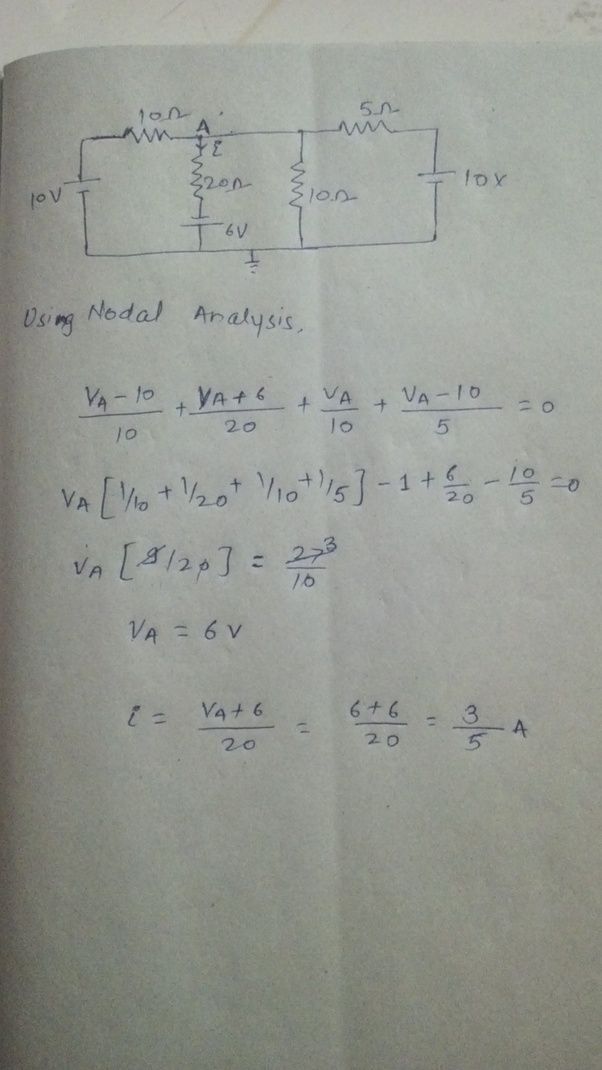 10Ω
A
5Ω
i
20Ω
10V
10Ω
10V
6V
Using Nodal Analysis,
VA - 10 / 10 + VA + 6 / 20 + VA / 10 + VA - 10 / 5 = 0
VA [1/10 + 1/20 + 1/10 + 1/5] - 1 + 6/20 - 10/5 = 0
VA [9/20] = 27 3 / 10
VA = 6 V
i = VA + 6 / 20 = 6 + 6 / 20 = 3 / 5 A